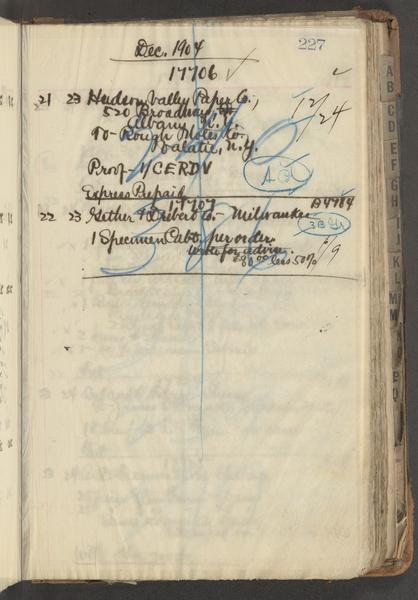 Dec. 1904
227
17706 ✓
21 23 Hudson Valley Paper Co.,
520 Broadway,
Albany, N.Y.
to- Rough Notes Co.
Valatie, N.Y.
12/24
Proof 1/CERDV
Express Prepaid
17707
B4784
22 23 Gether & Dribert Co - Milwaukee
1 Specimen Cabt. per order
Wrote for advice.
$80.00 less 50%
1/9
A
B
C
D
E
F
G
H
J
K
L
M